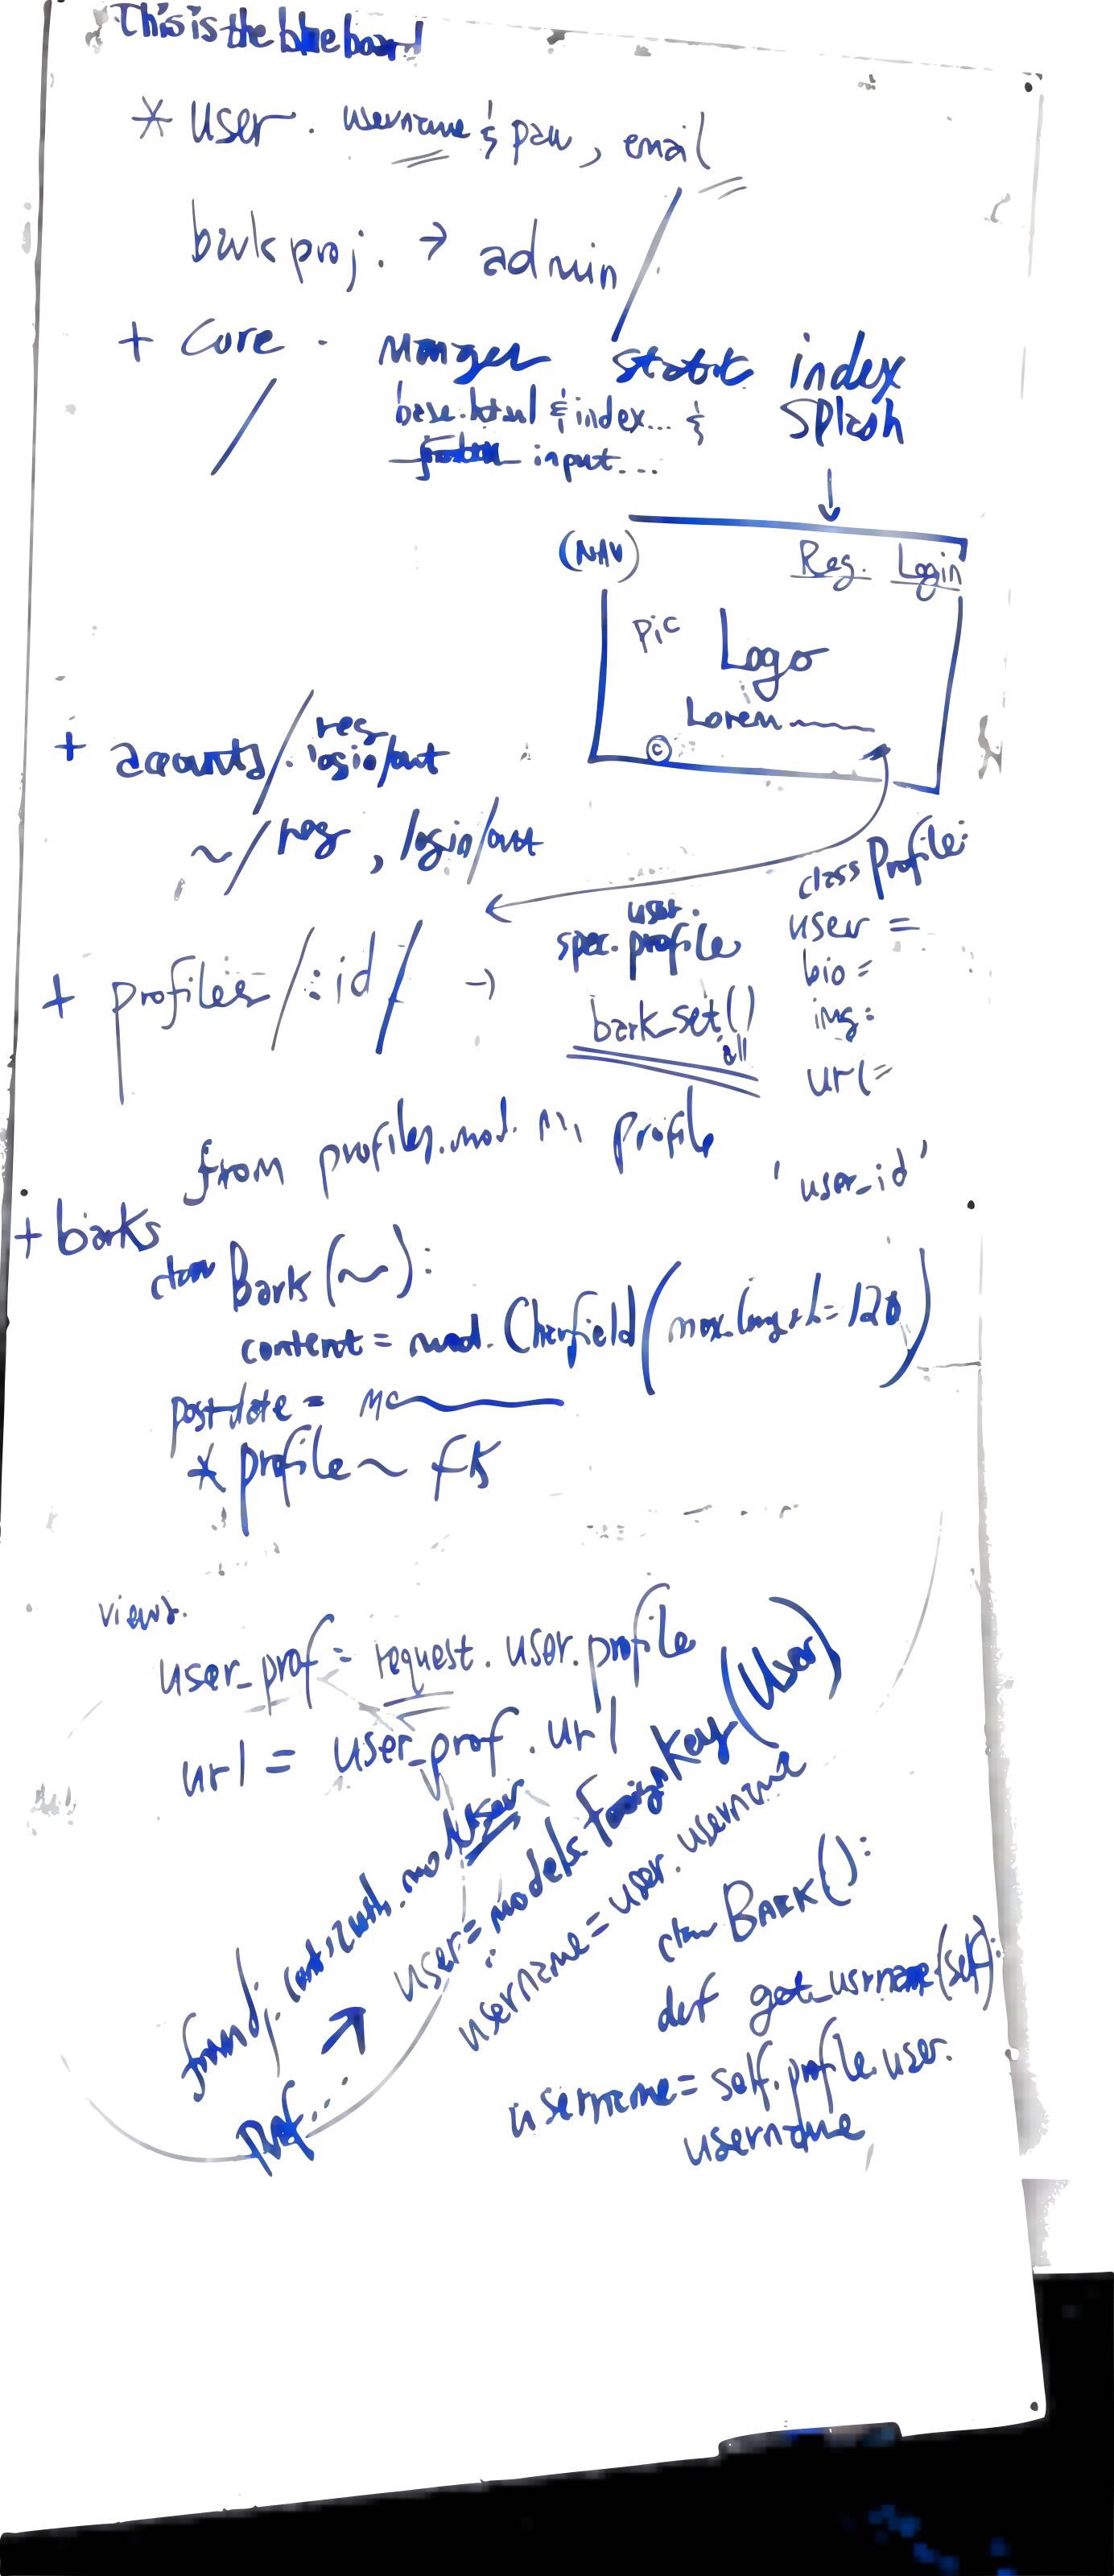 This is the blue board
* User. username & pass, email
bark proj. → admin
+ Core - Manger static index
base.html & index... & splash
input...
(NAV) Reg. Login
Pic Logo
Lorem
©
+ accounts/ reg login/out
~/reg, login/out
class Profile:
user =
bio =
img =
url =
+ profiles/:id/ → user. spec. profile
bark_set()
all
from profiles.mod. imp profile
'user_id'
+ barks
class Bark(~):
content = mod. Charfield(max_length=120)
post-date = 
* profile ~ FK
views.
user_prof = request.user.profile
url = user_prof.url
from dj. cont. auth. mod User
Prof...
user = models.ForeignKey(User)
username = user.username
class BARK():
def get_usrname(self):
username = self.profile.user.
username